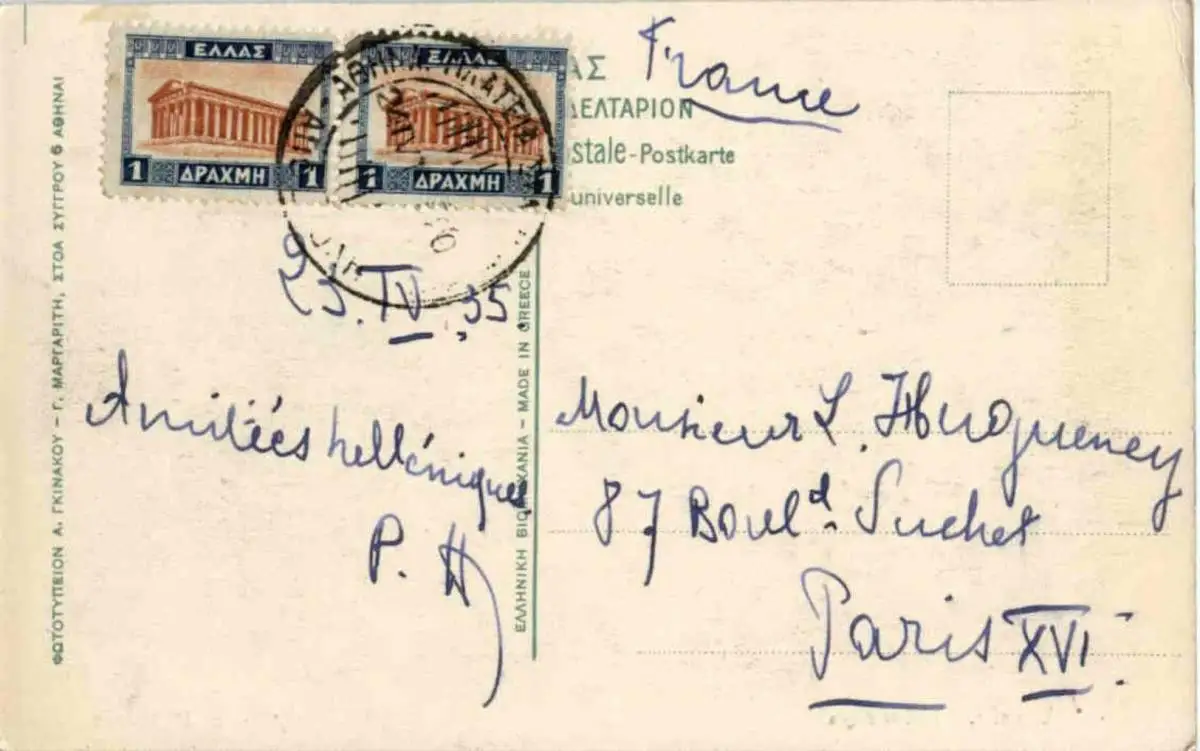 ΕΛΛΑΣ
1 ΔΡΑΧΜΗ 1
ΕΛΛΑΣ
1 ΔΡΑΧΜΗ 1
ΑΣ
ΔΕΛΤΑΡΙΟΝ
stale - Postkarte
universelle
France
25.IV.35.
Amitiées helléniques
P. H
Monsieur L. Hugueney
87 Boul.d Suchet
Paris XVI
ΦΩΤΟΤΥΠΕΙΟΝ Α. ΓΚΙΝΑΚΟΥ – Γ. ΜΑΡΓΑΡΙΤΗ, ΣΤΟΑ ΣΥΓΓΡΟΥ 6 ΑΘΗΝΑΙ
ΕΛΛΗΝΙΚΗ ΒΙΟΜΗΧΑΝΙΑ – MADE IN GREECE